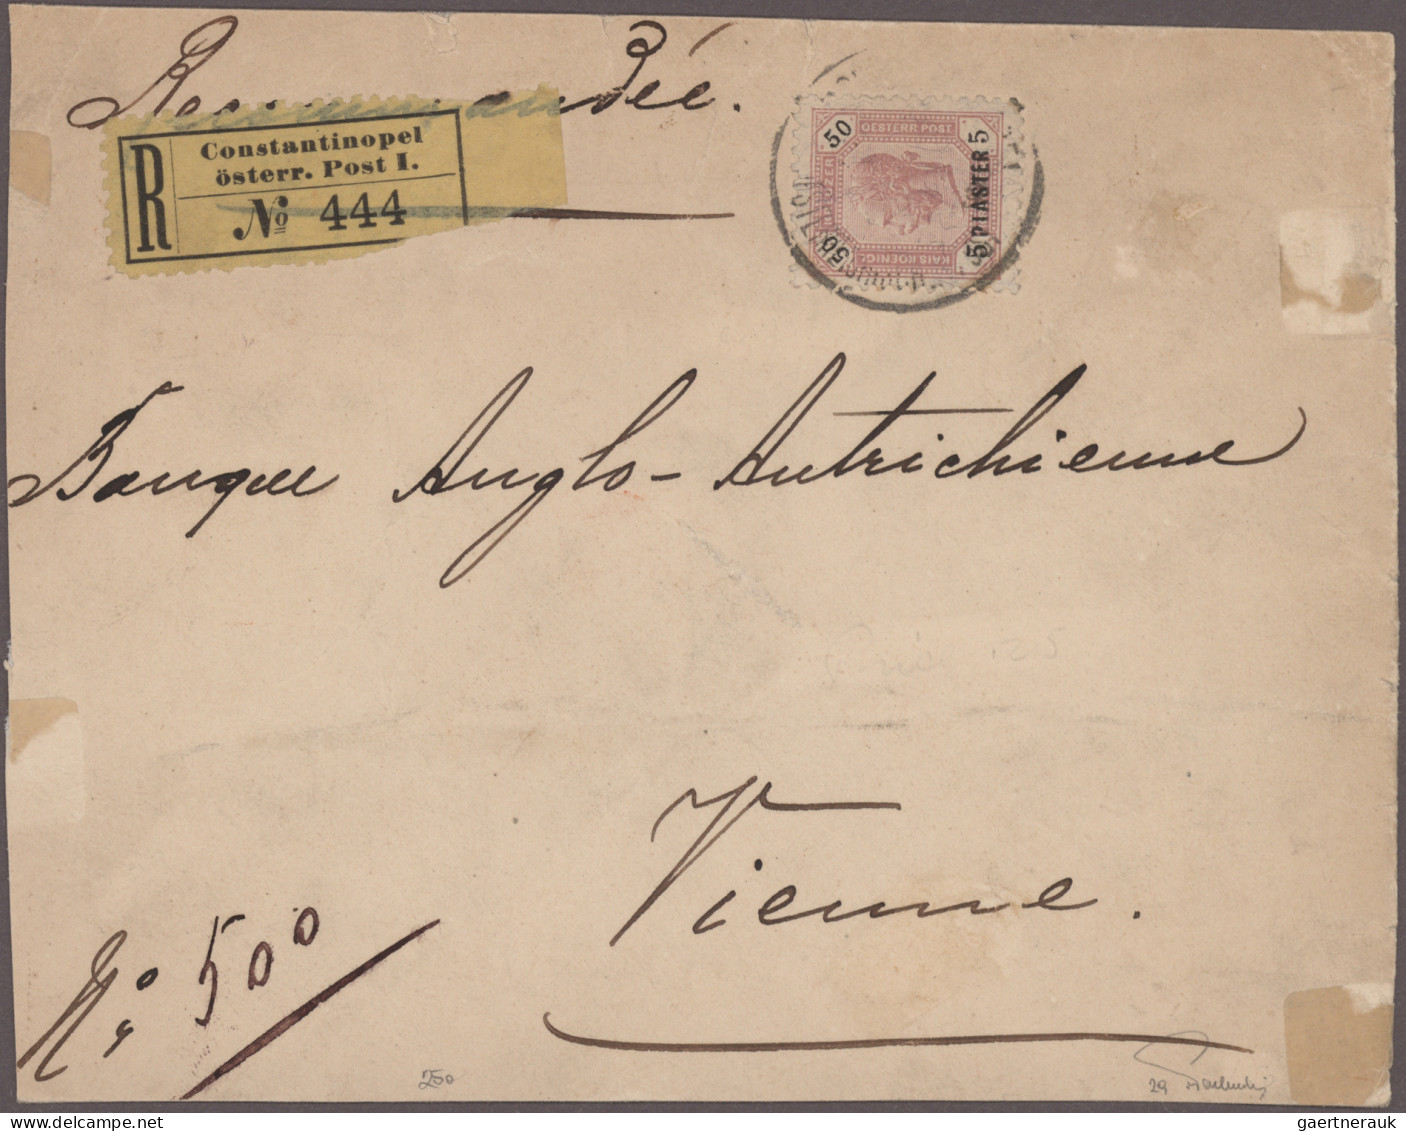 Recommandée.
R
Constantinopel
österr. Post I.
No 444
50
OESTERR. POST
5 PIASTER 5
50
KREUZER
KAIS. KOENIGL.
Banque Anglo-Autrichienne
Vienne.
No 500
250
29
gaertnerauk.com